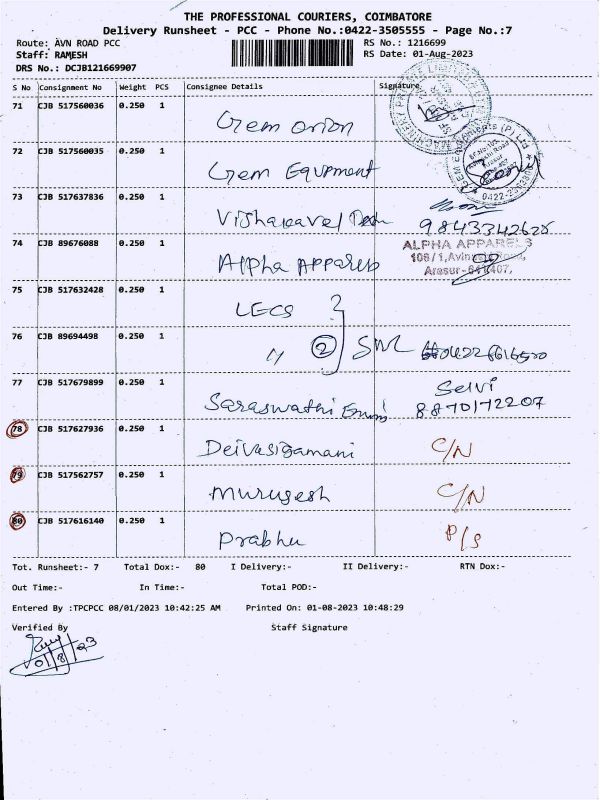 THE PROFESSIONAL COURIERS, COIMBATORE
Delivery Runsheet - PCC - Phone No.:0422-3505555 - Page No.:7
Route: AVN ROAD PCC
RS No.: 1216699
Staff: RAMESH
RS Date: 01-Aug-2023
DRS No.: DCJB121669907
S No Consignment No Weight PCS Consignee Details Signature
71 CJB 517560036 0.250 1 Gem orion
72 CJB 517560035 0.250 1 Gem Equpment
GEM Equipments (P) Ltd
0422-
73 CJB 517637836 0.250 1 9843342626
74 CJB 89676088 0.250 1 Alpha Apparels
ALPHA APPARELS
106/1, Road,
Arasur-641407.
75 CJB 517632428 0.250 1 LECS
76 CJB 89694498 0.250 1 〃 2
77 CJB 517679899 0.250 1 Saraswathi Selvi
8870172207
78 CJB 517627936 0.250 1 Deivasigamani C/N
79 CJB 517562757 0.250 1 Murugesh C/N
80 CJB 517616140 0.250 1 Prabhu P/S
Tot. Runsheet:- 7 Total Dox:- 80 I Delivery:- II Delivery:- RTN Dox:-
Out Time:- In Time:- Total POD:-
Entered By :TPCPCC 08/01/2023 10:42:25 AM Printed On: 01-08-2023 10:48:29
Verified By Staff Signature
01/8/23